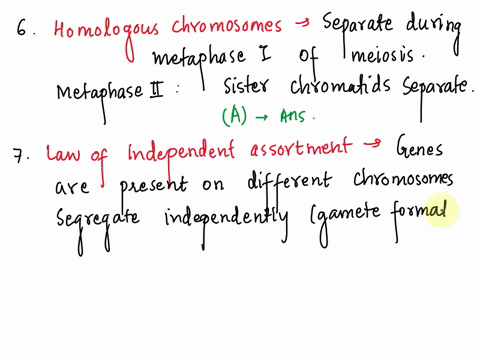 6. Homologous chromosomes → Separate during
metaphase I of meiosis.
Metaphase II : Sister chromatids separate.
(A) → Ans.
7. Law of independent assortment → Genes
are present on different chromosomes
Segregate independently (gamete formal